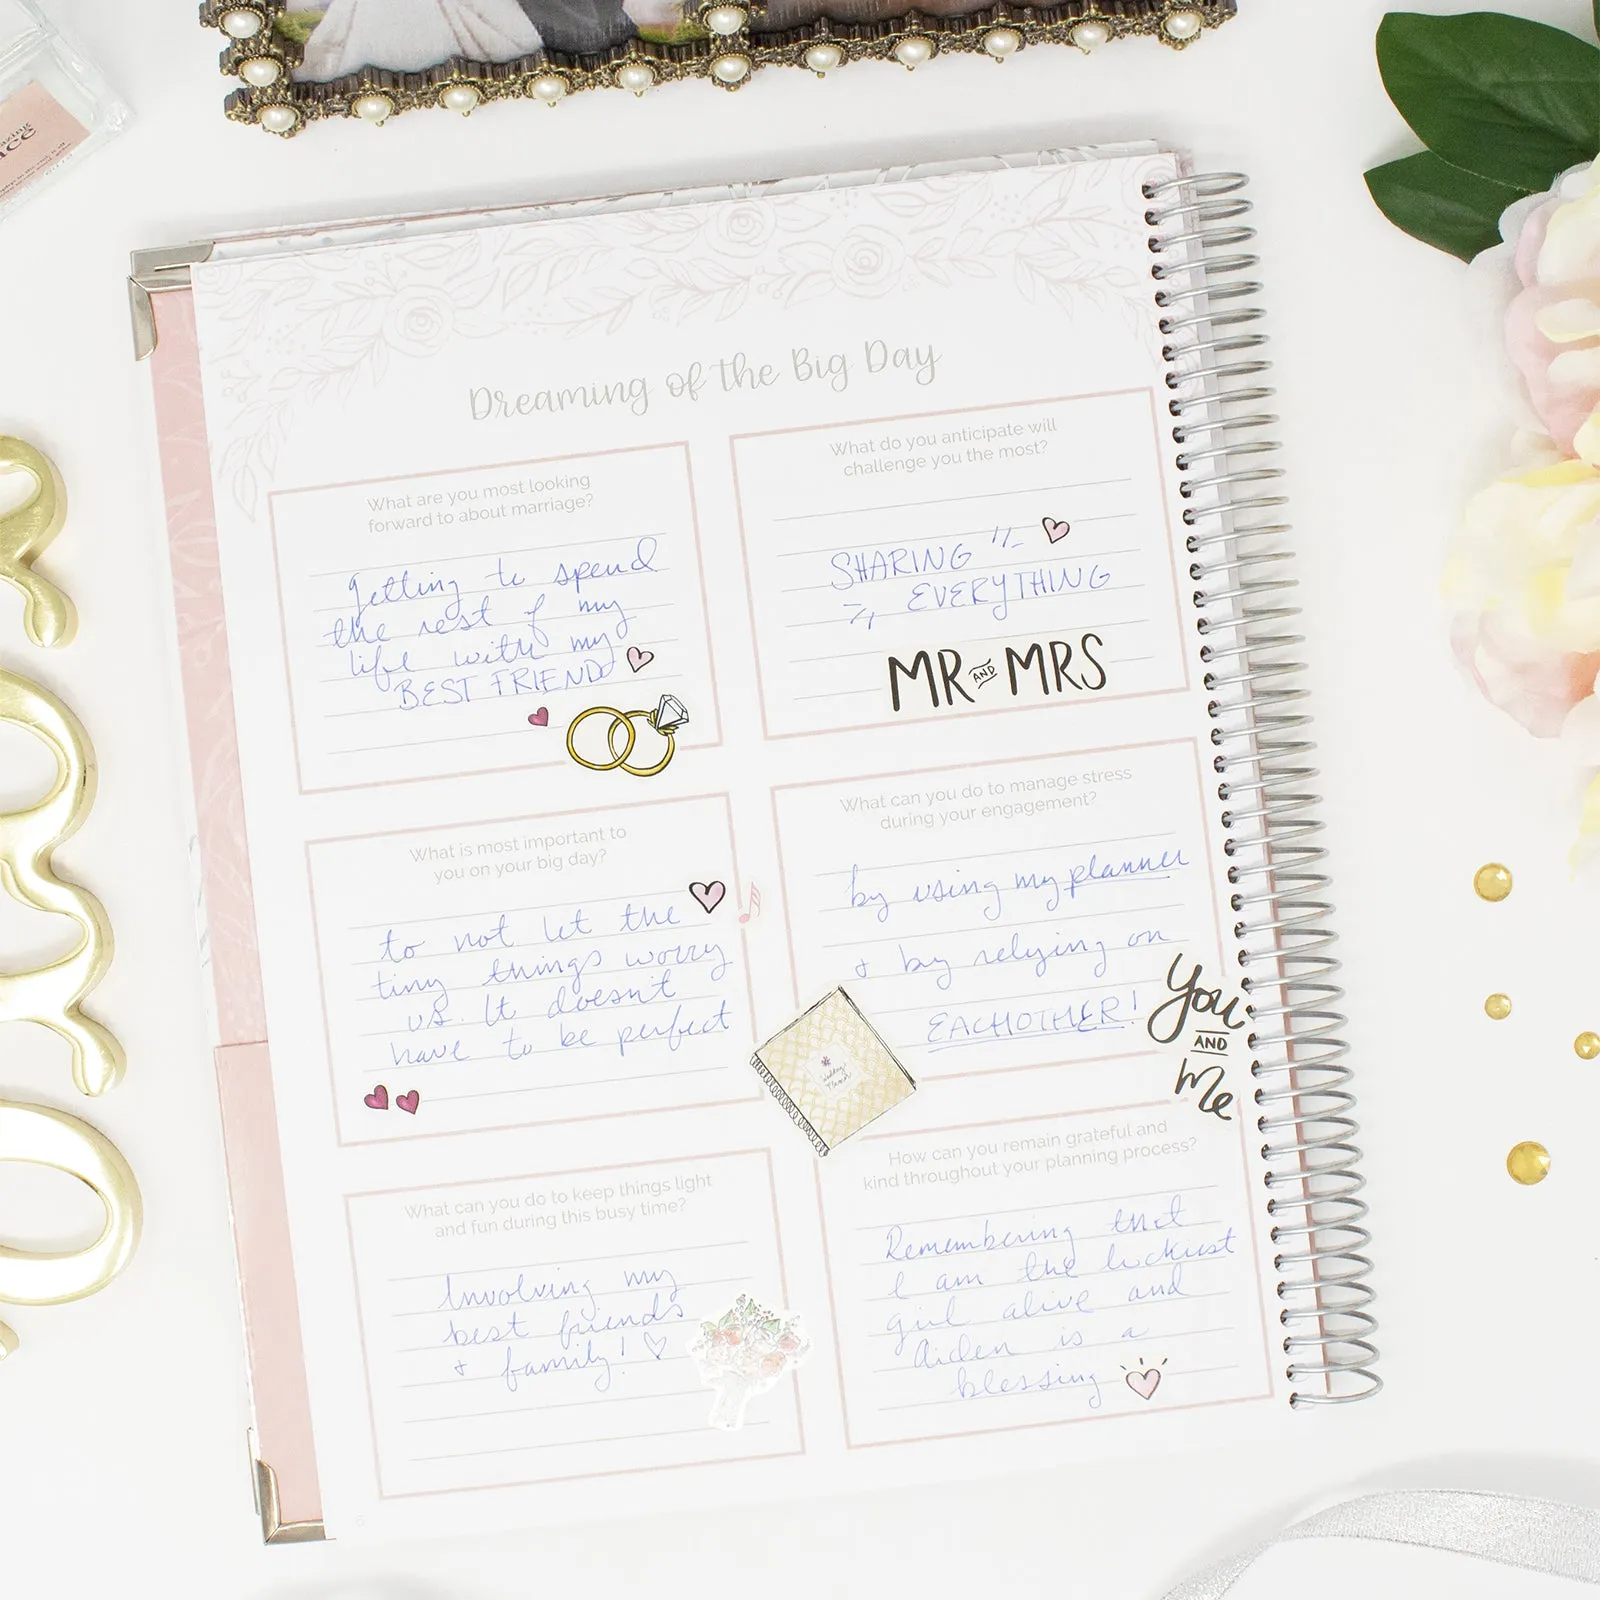 azing
ce
Dreaming of the Big Day
What are you most looking
forward to about marriage?
getting to spend
the rest of my
life with my
BEST FRIEND
What do you anticipate will
challenge you the most?
SHARING
EVERYTHING
MR AND MRS
What is most important to
you on your big day?
to not let the
tiny things worry
us. It doesn't
have to be perfect
What can you do to manage stress
during your engagement?
by using my planner
+ by relying on
EACHOTHER!
You
AND
Me
Wedding
Planner
What can you do to keep things light
and fun during this busy time?
Involving my
best friends
+ family!
How can you remain grateful and
kind throughout your planning process?
Remembering that
I am the luckiest
girl alive and
Aiden is a
blessing